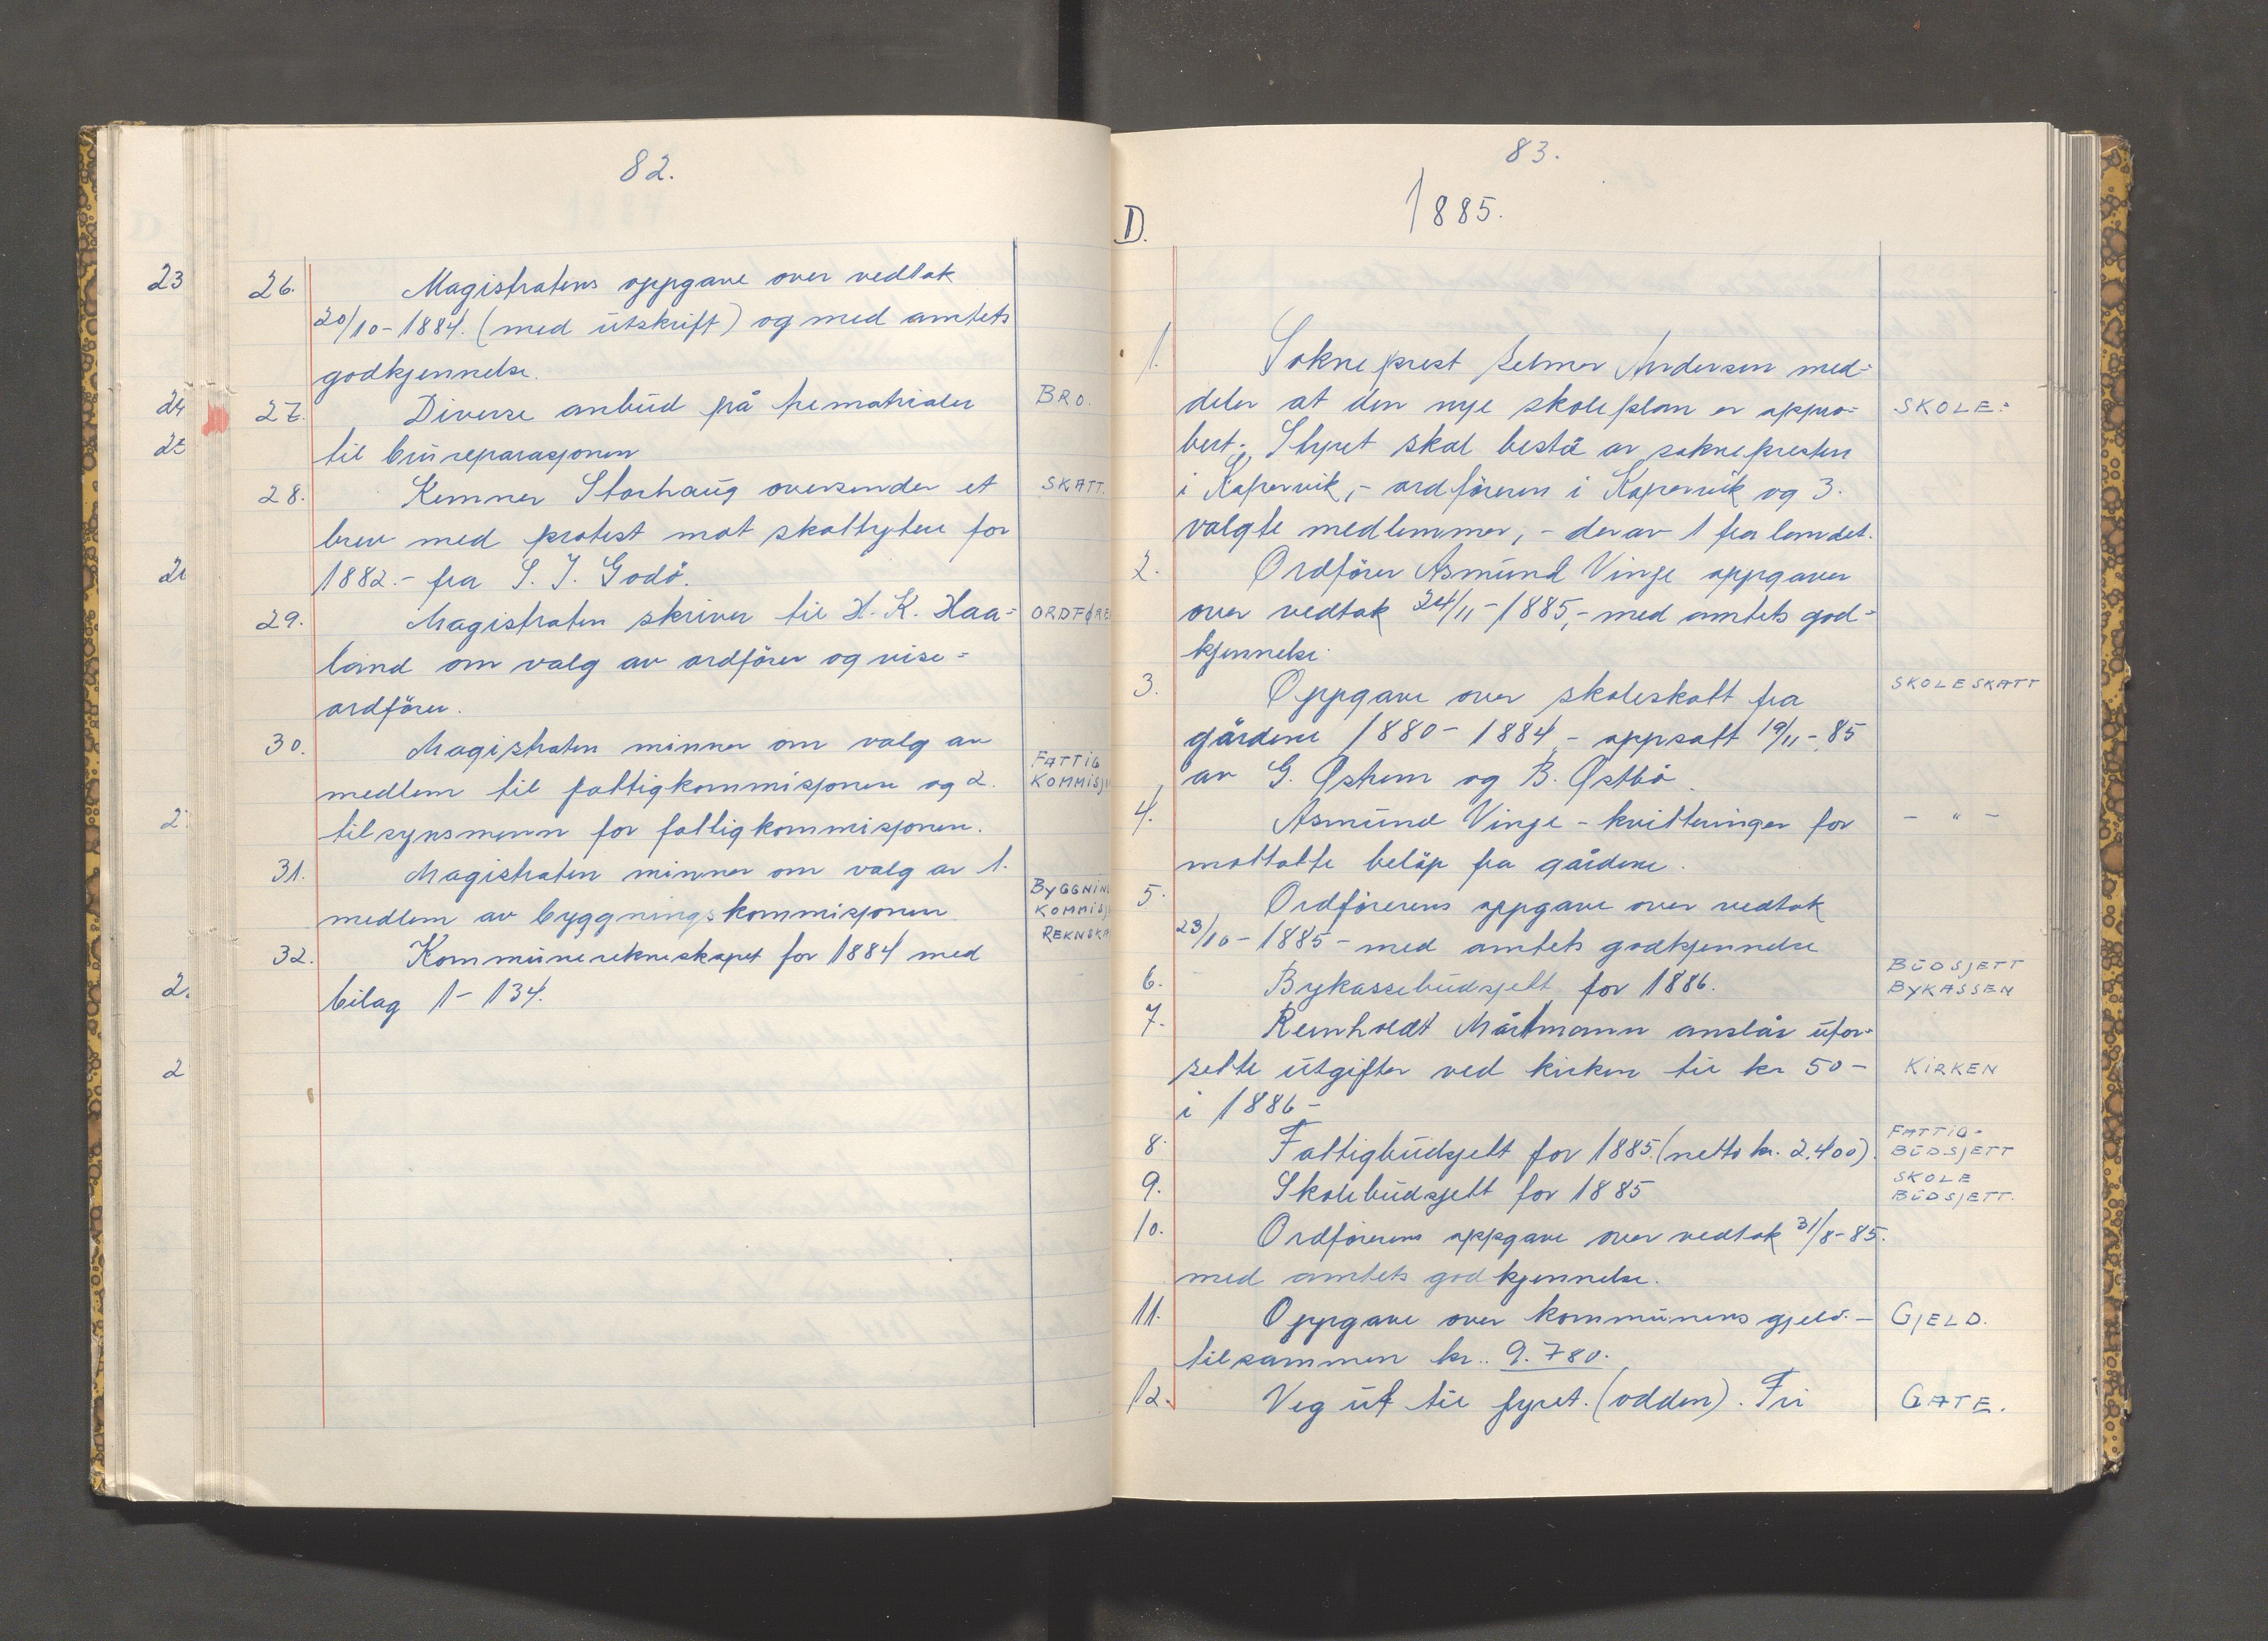 82.
23
26. Magistratens oppgave over vedtak
20/10-1884. (med utskrift) og med amtets
godkjennelse.
24
27. Diverse anbud på trematrialer BRO.
25
til bru reparasjonen
28. Kemner Storhaug oversender et SKATT.
brev med protest mot skattytere for
1882.- fra S. J. Godö.
29. Magistraten skriver til H. K. Haa= ORDFØRE
land om valg av ordförer og vise=
ordförer.
30. Magistraten minner om valg av FATTIG
medlem til fattigkommisjonen og 2. KOMMISJ
tilsynsmenn for fattigkommisjonen.
31. Magistraten minner om valg av 1. BYGGNIN
medlem av byggningskommisjonen KOMMISJ
REKNSKA
32. Kommunerekneskapet for 1884 med
bilag 1-134.
83.
D. 1885.
1. Sokneprest Selmer Andersen med=
deler at den nye skoleplan er appro= SKOLE=
bert; Styret skal bestå av soknepresten
i Kopervik,- ordföreren i Kopervik og 3.
valgte medlemmer,- derav 1 fra landet.
2. Ordförer Asmund Vinje oppgaver
over vedtak 24/11-1885,- med amtets god=
kjennelse.
3. Oppgave over skoleskatt fra SKOLESKATT
gårdene 1880-1884 - oppsatt 19/11-85
av G. Østhem og B. Østbö.
4. Asmund Vinje - kvitteringer for - " -
mottatte beløp fra gårdene.
5. Ordförerens oppgave over vedtak
23/10-1885- med amtets godkjennelse
6. Bykassebudsjett for 1886. BUDSJETT
BYKASSEN
7. Reinholdt Mårtmann anslår ufor=
sette utgifter ved kirken til kr 50- KIRKEN
i 1886-
8. Fattigbudsjett for 1885. (netto kr. 2.400). FATTIG-
BUDSJETT
9. Skolebudsjett for 1885 SKOLE
BUDSJETT.
10. Ordförerens oppgave over vedtak 31/8-85.
med amtets godkjennelse.
11. Oppgave over kommunens gjeld.- GJELD.
tilsammen kr.. 9.780.
12. Veg ut til fyret. (odden). Fri GATE.